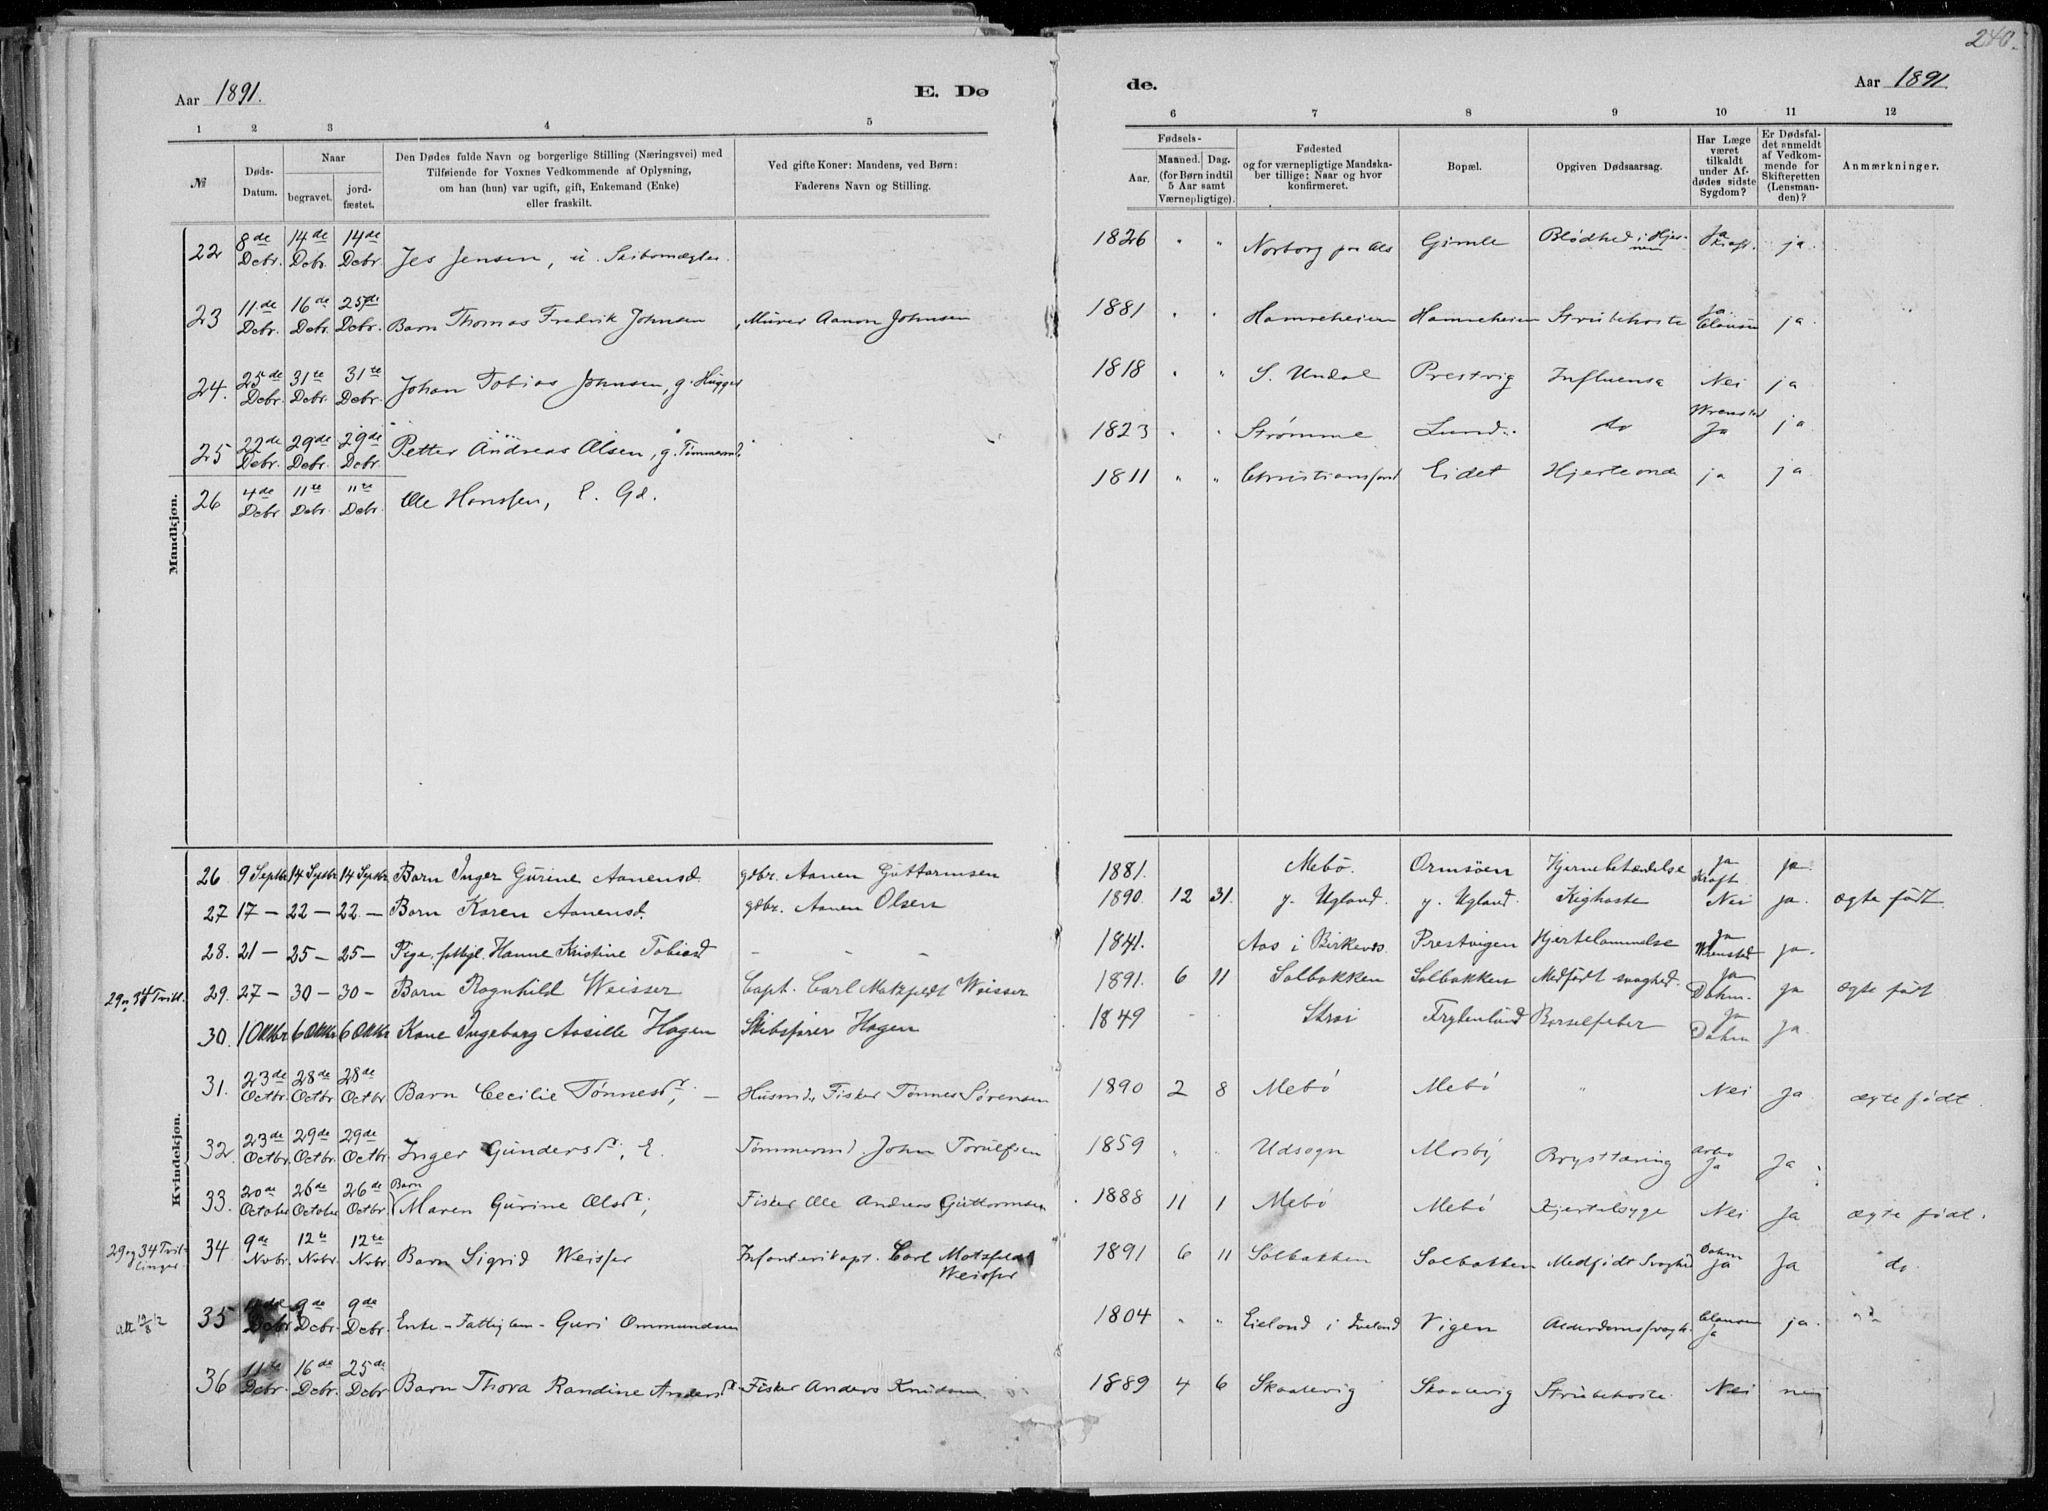 240.
Aar 1891.
E. Dø
de.
Aar 1891.
1 2 3 4 5 6 7 8 9 10 11 12
№
Døds-
Datum.
Naar
begravet.
jord-
fæstet.
Den Dødes fulde Navn og borgerlige Stilling (Næringsvei) med
Tilføiende for Voxnes Vedkommende af Oplysning,
om han (hun) var ugift, gift, Enkemand (Enke)
eller fraskilt.
Ved gifte Koner: Mandens, ved Børn:
Faderens Navn og Stilling.
Fødsels-
Aar.
Maaned. Dag.
(for Børn indtil
5 Aar samt
Værnepligtige).
Fødested
og for værnepligtige Mandska-
ber tillige: Naar og hvor
konfirmeret.
Bopæl.
Opgiven Dødsaarsag.
Har Læge
været
tilkaldt
under Af-
dødes sidste
Sygdom?
Er Dødsfal-
det anmeldt
af Vedkom-
mende for
Skifteretten
(Lensman-
den)?
Anmærkninger.
Mandkjøn.
22 8de Decbr. 14de Decbr. 14de Decbr. Jes Jensen, u. Skibsmægler. 1826 " " Norborg paa Als Gimle Blødhed i Hjernen Ja Kraft. ja.
23 11de Debr. 16de Debr. 25de Debr. Barn Thomas Fredrik Johnsen, Murer Aanon Johnsen 1881 " " Hamreheien Hamreheien Strubehoste Ja. Clausen ja.
24. 25de Debr. 31te Debr. 31te Debr. Johan Tobias Johnsen, g. Hugger 1818 " " S. Undal Prestvig Influensa Nei ja
25 22de Debr. 29de Debr. 29de Debr. Petter Andreas Olsen, g. Tømmermd. 1823 " " Strømme Lund. do Wrensted Ja ja
26 4de Debr. 11te Debr. 11te Debr. Ole Hanssen, E. Gd. 1811 " " Christianssand Eidet Hjerteonde ja ja
Kvindekjøn.
26 9 Septbr 14 Septbr 14 Septbr Barn Inger Gurine Aanensd. gdbr. Aanen Guttormsen 1881. Mebø. Ormsøen Hjernebetændelse Ja Kraft. ja.
27 17 — 22 — 22. — Barn Karen Aanensd. gdbr. Aanen Olsen 1890. 12 31. y. Ugland. y. Ugland. Kighoste Nei ja. ægte født.
28. 21 — 25 — 25 — Pige, Hanne Kristine Tobiasd — — 1841. Aas i Birkenes. Prestvigen Hjertelammelse Ja Wrensted ja.
29 og 34 Tvill.
29. 27 — 30 — 30 — Barn Ragnhild Weisser Capt. Carl Motzfeldt Weisser 1891. 6 11 Solbakken Solbakken Medfødt svaghed. Ja Dahm. ja ægte født
30. 1 Oktbr 6 Oktbr 6 Oktbr Kone Ingeborg Aasille Hagen Skibsfører Hagen 1849 - - Strai Frydenlund Barselfeber Ja Dahm Ja.
31. 23de Octbr. 28de Octbr. 28de Octbr. Barn Cecilie Tønnesdr, — Husmd. Fisker Tønnes Sørensen 1890 2 8 Mebø Mebø " Nei Ja ægte født.
32. 23de Octbr. 29de Octbr. 29de Octbr. Inger Gundersdr, E. Tømmermd. John Torulfsen 1859 " " Udsogn Mosby Brysttæring Arbo Ja Ja
33. 20de October 26de October 26de Octbr. Barn Maren Gurine Olsdr, Fisker Ole Andreas Guttormsen 1888 11 1 Mebø Mebø Kjertelsyge Nei Ja ægte født.
29 og 34 Tvil-
linger
34 9de Novbr. 12te Novbr. 12te Novbr. Barn Sigrid Weisser Infanterikapt. Carl Motzfeldt Weisser 1891 6 11 Solbakken Solbakken Medfødt Svaghed Dahm Ja Ja do
att 19/8 12
35 Debr 9de Debr. 9de Debr. Enke - Fattiglem - Guri Ommundsen 1804 " " Eieland i Iveland Vigen Alderdomssvagh. Clausen Ja ja.
36 11te Debr. 16de Debr. 25de Debr. Barn Thora Randine Andersdr Fisker Anders Knudsen 1889 4 6 Skaalevig Skaalevig Strubehoste. Nei nei